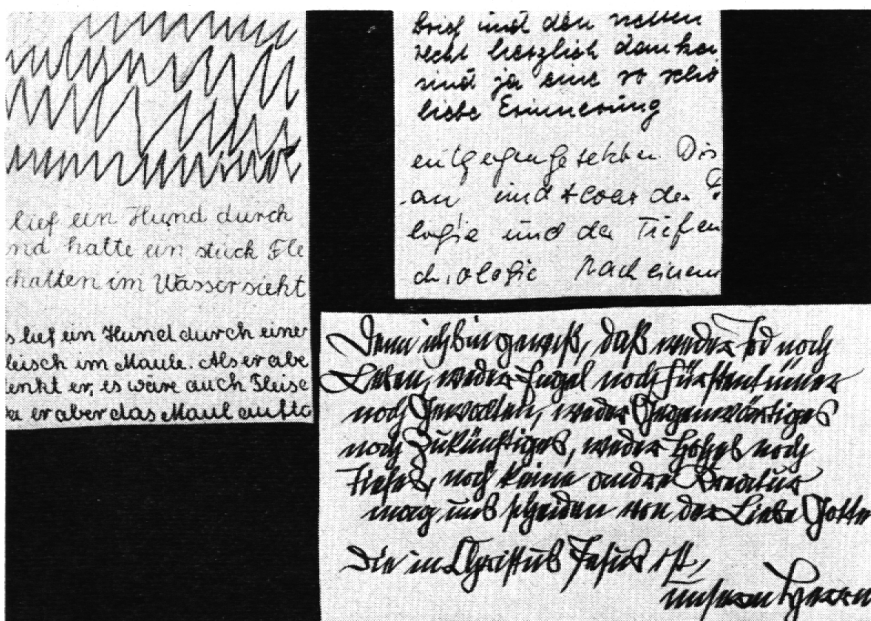 lief ein Hund durch
nd hatte ein stück Fle
chatten im Wasser sieht
s lief ein Hund durch einer
leisch im Maule. Als er abe
enkt er, es wäre auch Fleisc
a er aber das Maul aufta
brief und den netten
recht herzlich danken
sind ja eine so schö
liebe Erinnerung
entgegengesetzten Dis
an und zwar der
logie und der Tiefen
nach einem
Denn ich bin gewiß, daß weder Tod noch
Leben, weder Engel noch Fürstentümer
noch Gewalten, weder Gegenwärtiges
noch Zukünftiges, weder Hohes noch
Tiefes, noch keine andre Kreatur
mag uns scheiden von der Liebe Gotte
die in Christus Jesus ist,
unserm Herrn